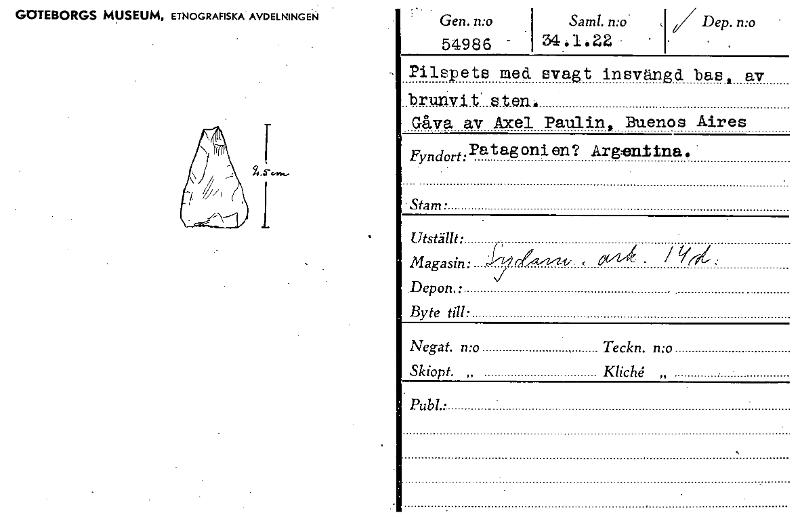 GÖTEBORGS MUSEUM, ETNOGRAFISKA AVDELNINGEN
2.5 cm
Gen. n:o Saml. n:o Dep. n:o
54986 34.1.22
Pilspets med svagt insvängd bas, av
brunvit sten.
Gåva av Axel Paulin, Buenos Aires
Fyndort: Patagonien? Argentina.
Stam:
Utställt:
Magasin: Sydam. ark. 14d.
Depon.:
Byte till:
Negat. n:o Teckn. n:o
Skiopt. „ Kliché „
Publ.: